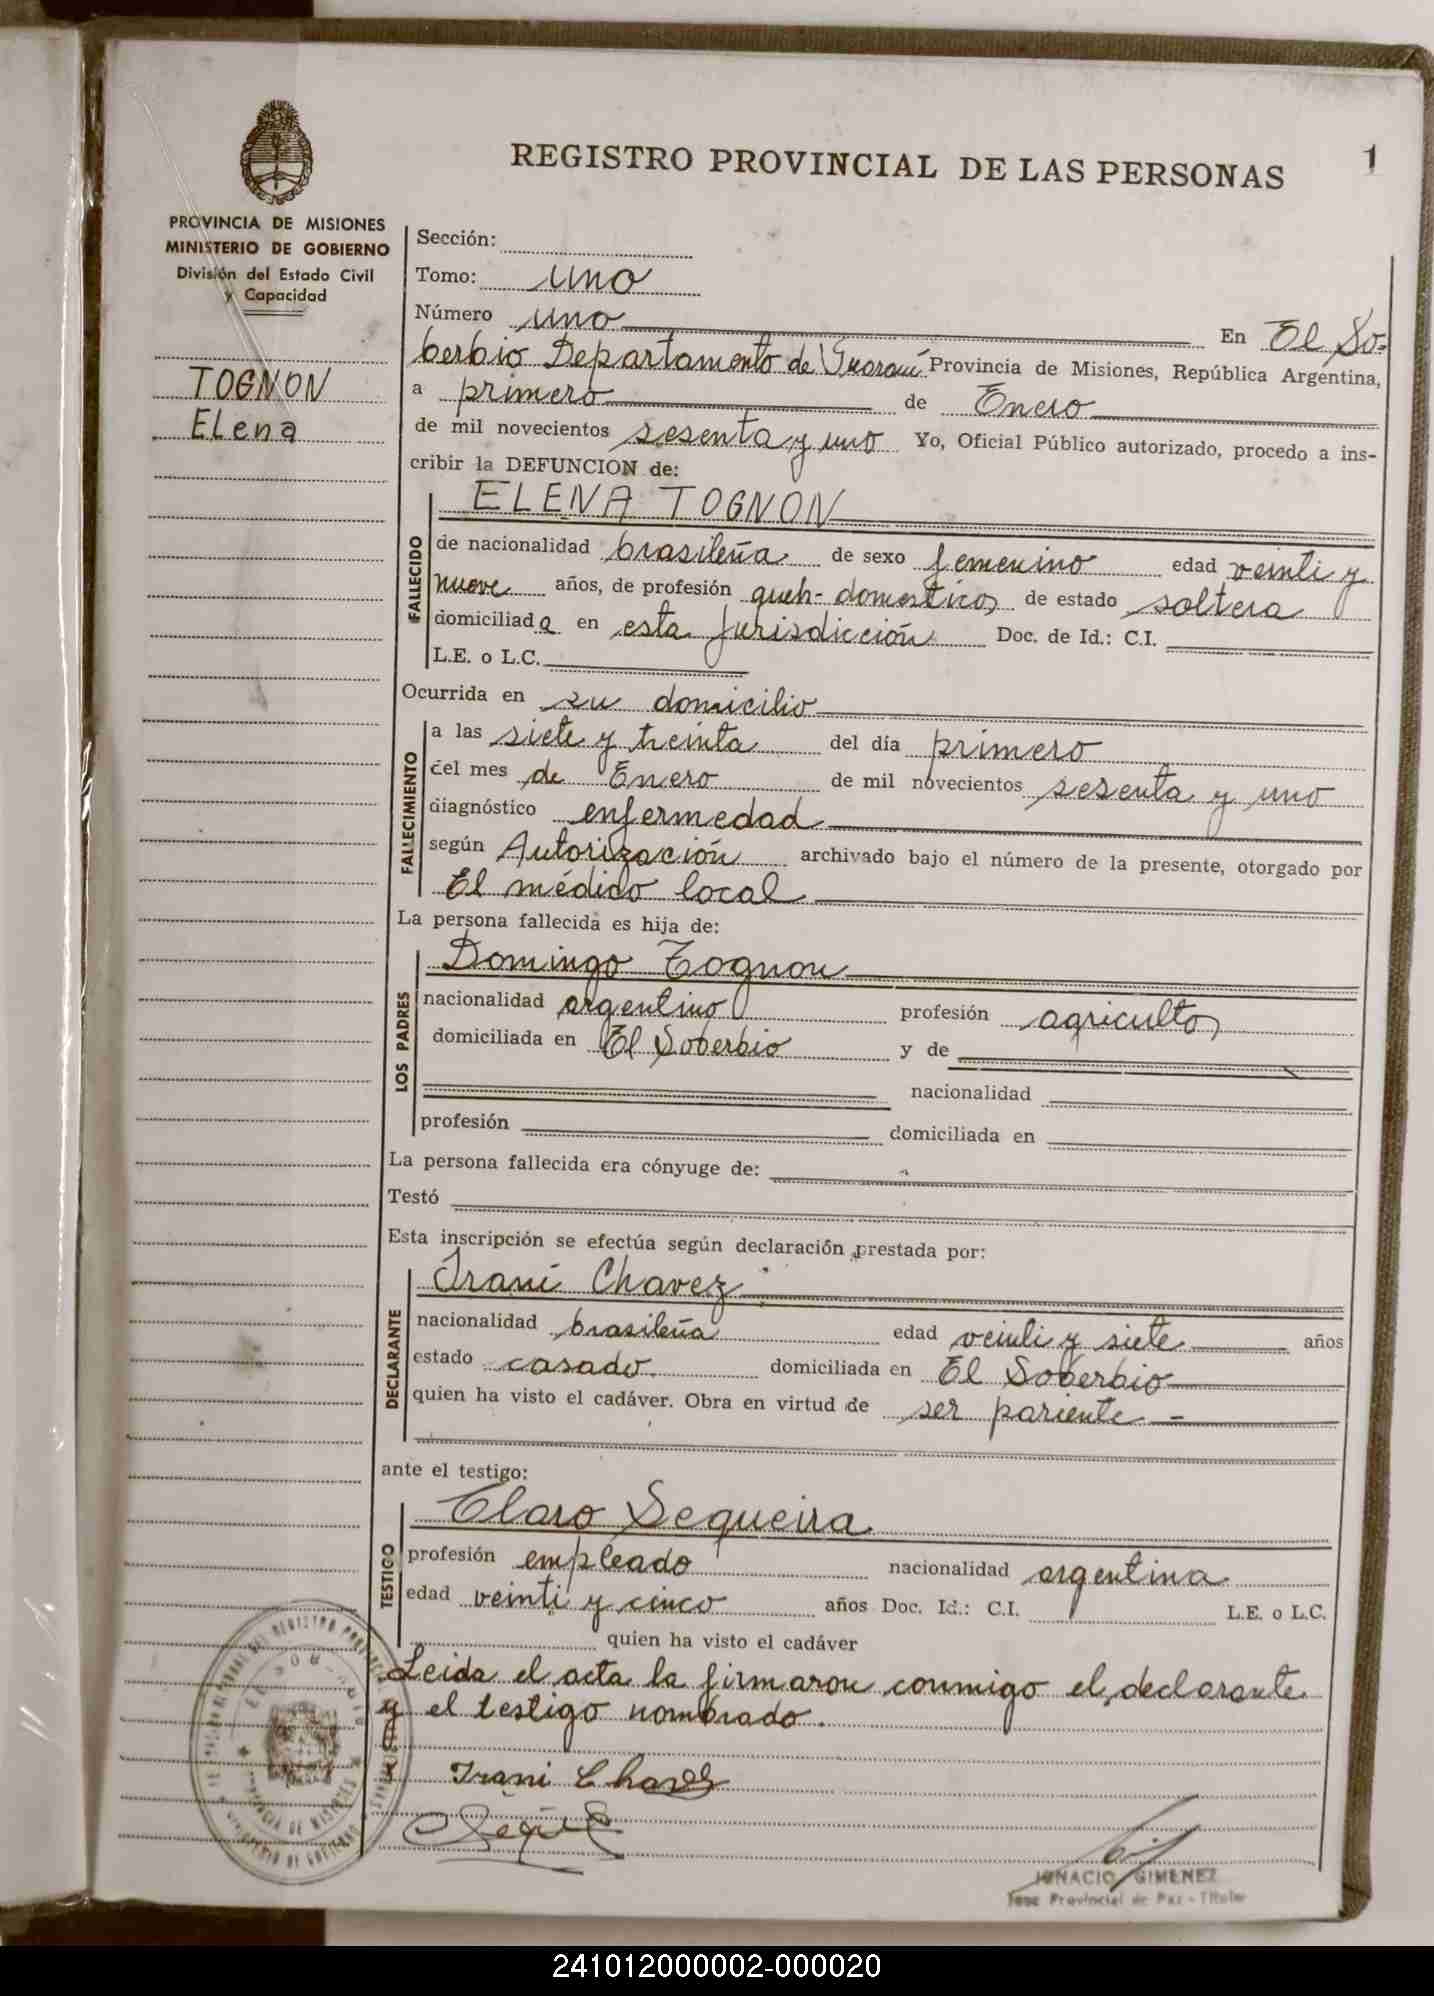 1
REGISTRO PROVINCIAL DE LAS PERSONAS
PROVINCIA DE MISIONES
MINISTERIO DE GOBIERNO
División del Estado Civil
y Capacidad
TOGNON
Elena
Sección:
Tomo: uno
Número uno En El So-
berbio Departamento de Guaraní Provincia de Misiones, República Argentina,
a primero de Enero
de mil novecientos sesenta y uno Yo, Oficial Público autorizado, procedo a ins-
cribir la DEFUNCION de:
ELENA TOGNON
FALLECIDO
de nacionalidad brasileña de sexo femenino edad veinti y
nueve años, de profesión queh- domesticos de estado soltera
domiciliada en esta jurisdicción Doc. de Id.: C.I.
L.E. o L.C.
Ocurrida en su domicilio
FALLECIMIENTO
a las siete y treinta del día primero
del mes de Enero de mil novecientos sesenta y uno
diagnóstico enfermedad
según Autorización archivado bajo el número de la presente, otorgado por
El médido local
La persona fallecida es hija de:
LOS PADRES
Domingo Tognon
nacionalidad argentino profesión agricultor
domiciliada en El Soberbio y de
nacionalidad
profesión domiciliada en
La persona fallecida era cónyuge de:
Testó
Esta inscripción se efectúa según declaración prestada por:
DECLARANTE
Irani Chavez
nacionalidad brasileña edad veinti y siete años
estado casado. domiciliada en El Soberbio
quien ha visto el cadáver. Obra en virtud de ser pariente -
ante el testigo:
TESTIGO
Claro Sequeira
profesión empleado nacionalidad argentina
edad veinti y cinco años Doc. Id.: C.I. L.E. o L.C.
quien ha visto el cadáver
Leida el acta la firmaron conmigo el declarante
y el testigo nombrado.
Irani Chavez
IGNACIO GIMENEZ
Juez Provincial de Paz - Titular
241012000002-000020